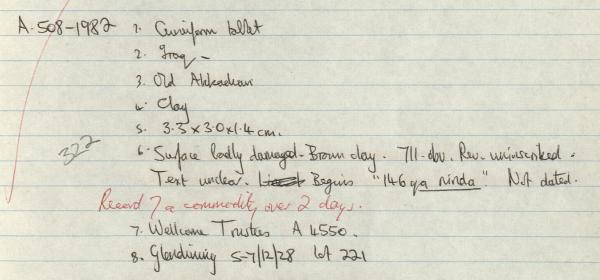 A. 508-1982 1. Cuneiform tablet
2. Iraq -
3. Old Akkadian
4. Clay
5. 3.3 x 3.0 x 1.4 cm.
322 6. Surface badly damaged. Brown clay. 7 ll. obv. Rev. uninscribed.
Text unclear. Begins "146 qa ninda" Not dated.
Record of a commodity over 2 days.
7. Wellcome Trustees A 4550.
8. Glendining 5-7/12/28 lot 221